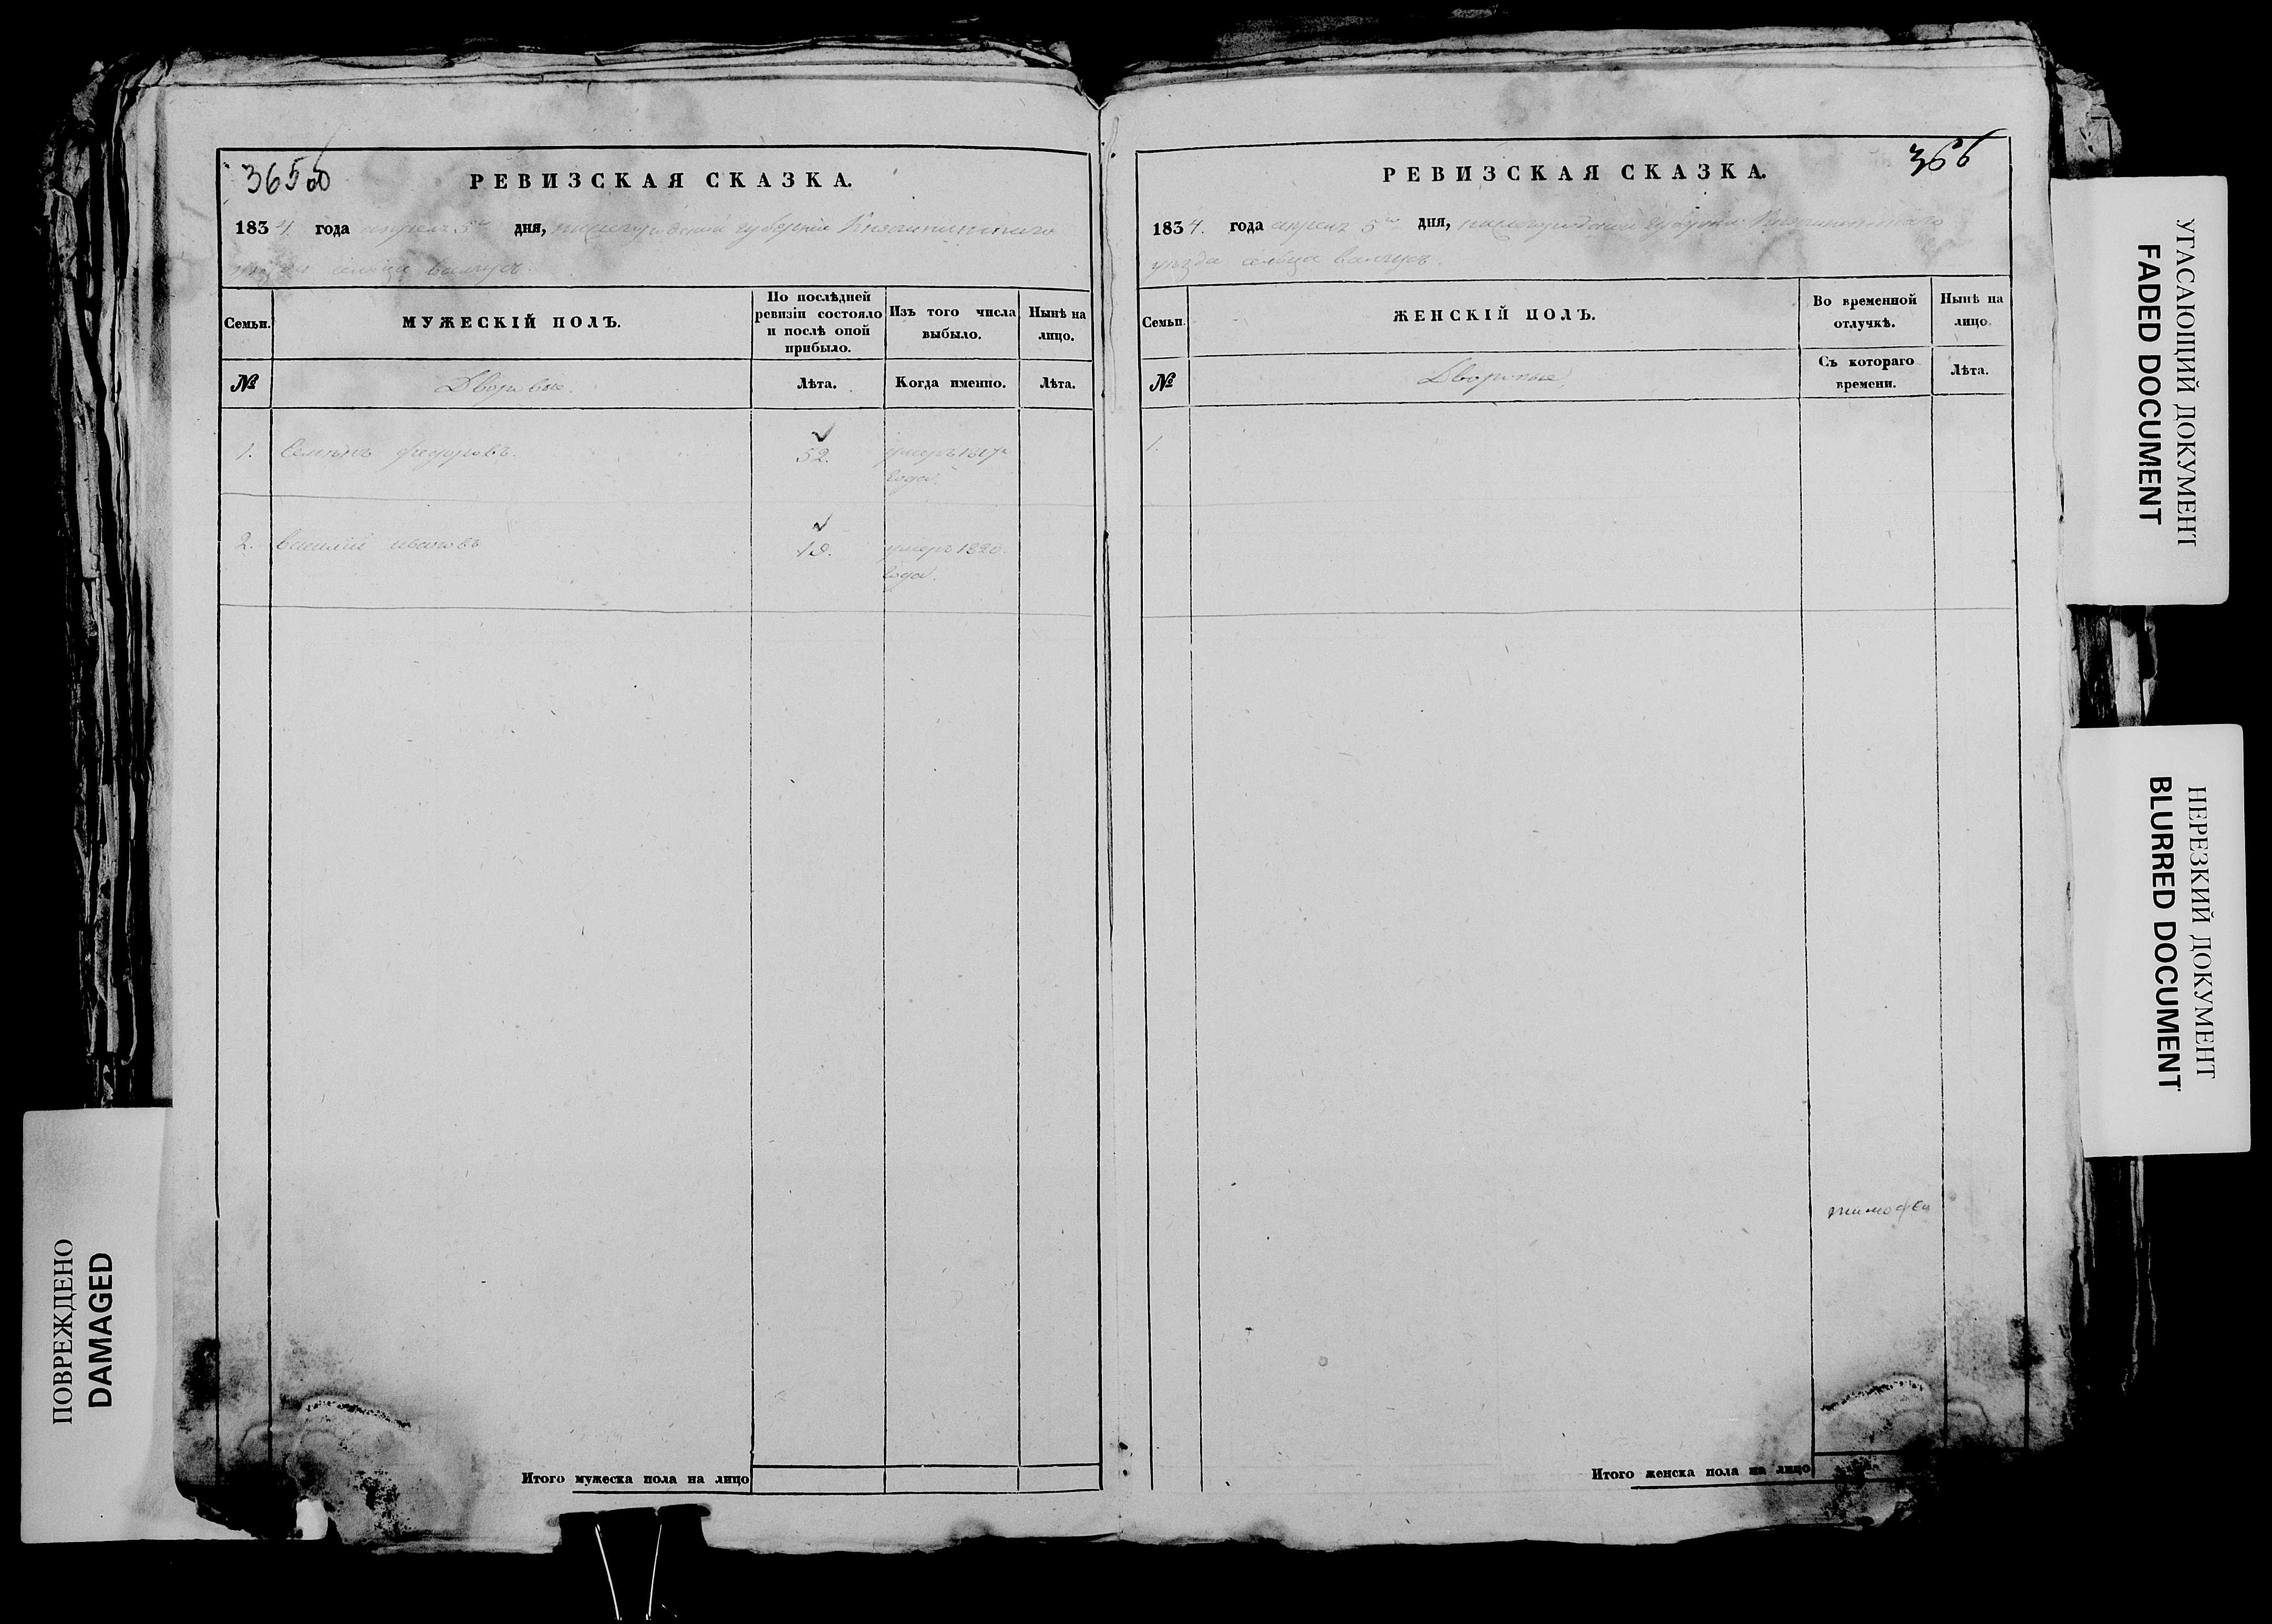 365 об
РЕВИЗСКАЯ СКАЗКА.
1834. года апреля 5го дня, нижегородской губернiи Княгининскаго
уезда сельца
Семьи.
МУЖЕСКIЙ ПОЛЪ.
По послѣдней ревизiи состояло и послѣ оной прибыло.
Изъ того числа выбыло.
Нынѣ на лицо.
№
Дворовые.
Лѣта.
Когда именно.
Лѣта.
1. Семенъ федоровъ. 52. умеръ
года.
2. василiй ивановъ умеръ 1820.
года.
Итого мужеска пола на лицо
366
РЕВИЗСКАЯ СКАЗКА.
1834. года апреля 5го дня, нижегородской губернiи Княгининскаго
уѣзда сельца
Семьи.
ЖЕНСКIЙ ПОЛЪ.
Во временной отлучкѣ.
Нынѣ на лицо.
№
Дворовые.
Съ котораго времени.
Лѣта.
1.
тимофѣй
Итого женска пола на лицо
УГАСАЮЩИЙ ДОКУМЕНТ
FADED DOCUMENT
НЕРЕЗКИЙ ДОКУМЕНТ
BLURRED DOCUMENT
ПОВРЕЖДЕНО
DAMAGED